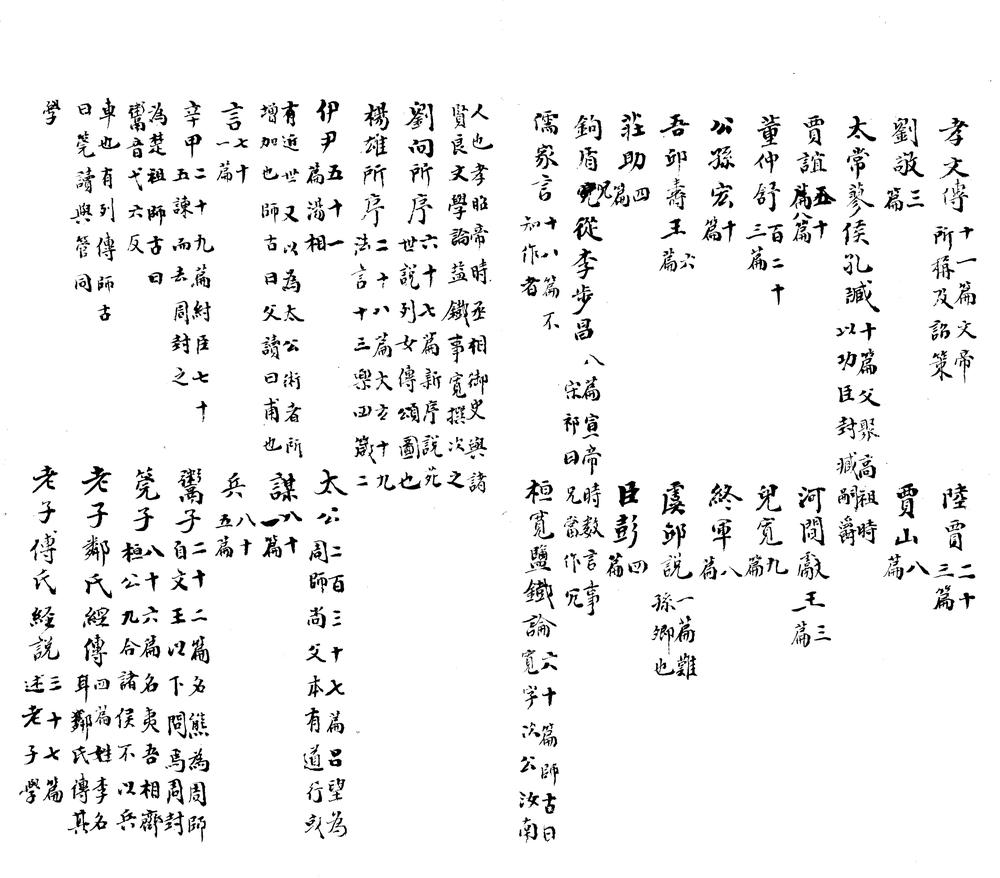 孝文傳十一篇文帝所稱及詔策 陸賈二十三篇
劉敬三篇 賈山八篇
太常蓼侯孔臧十篇父聚高祖時以功臣封臧嗣爵
賈誼五十八篇 河間獻王三篇
董仲舒百二十三篇 兒寬九篇
公孫宏十篇 終軍八篇
吾邱壽王六篇 虞邱説一篇難孫卿也
莊助四篇 臣彭四篇
鉤盾兄從李步昌八篇宣帝時数言事宋祁曰兄當作冗
儒家言十八篇不知作者 桓寬鹽鐵論六十篇師古曰寬字次公汝南
人也孝昭帝時丞相御史與諸賢良文學論益鐵事寬撰次之
劉向所序六十七篇新序説苑世説列女傳頌圖也
楊雄所序二十八篇大玄十九法言十三樂四箴二
伊尹五十一篇湯相 太公二百三十七篇吕望為周師尚父本有道行或
有近世又以為太公術者所增加也師古曰父讀曰甫也 謀八十一篇
言七十一篇 兵八十五篇
辛甲二十九篇紂臣七十五諫而去周封之 鬻子二十二篇名熊為周師自文王以下問焉周封
為楚祖師古曰鬻音弋六反 筦子八十六篇名夷吾相齊桓公九合諸侯不以兵
車也有列傳師古曰筦讀與管同 老子鄰氏經傳四篇姓李名耳鄰氏傳其
學 老子傅氏経説三十七篇述老子學